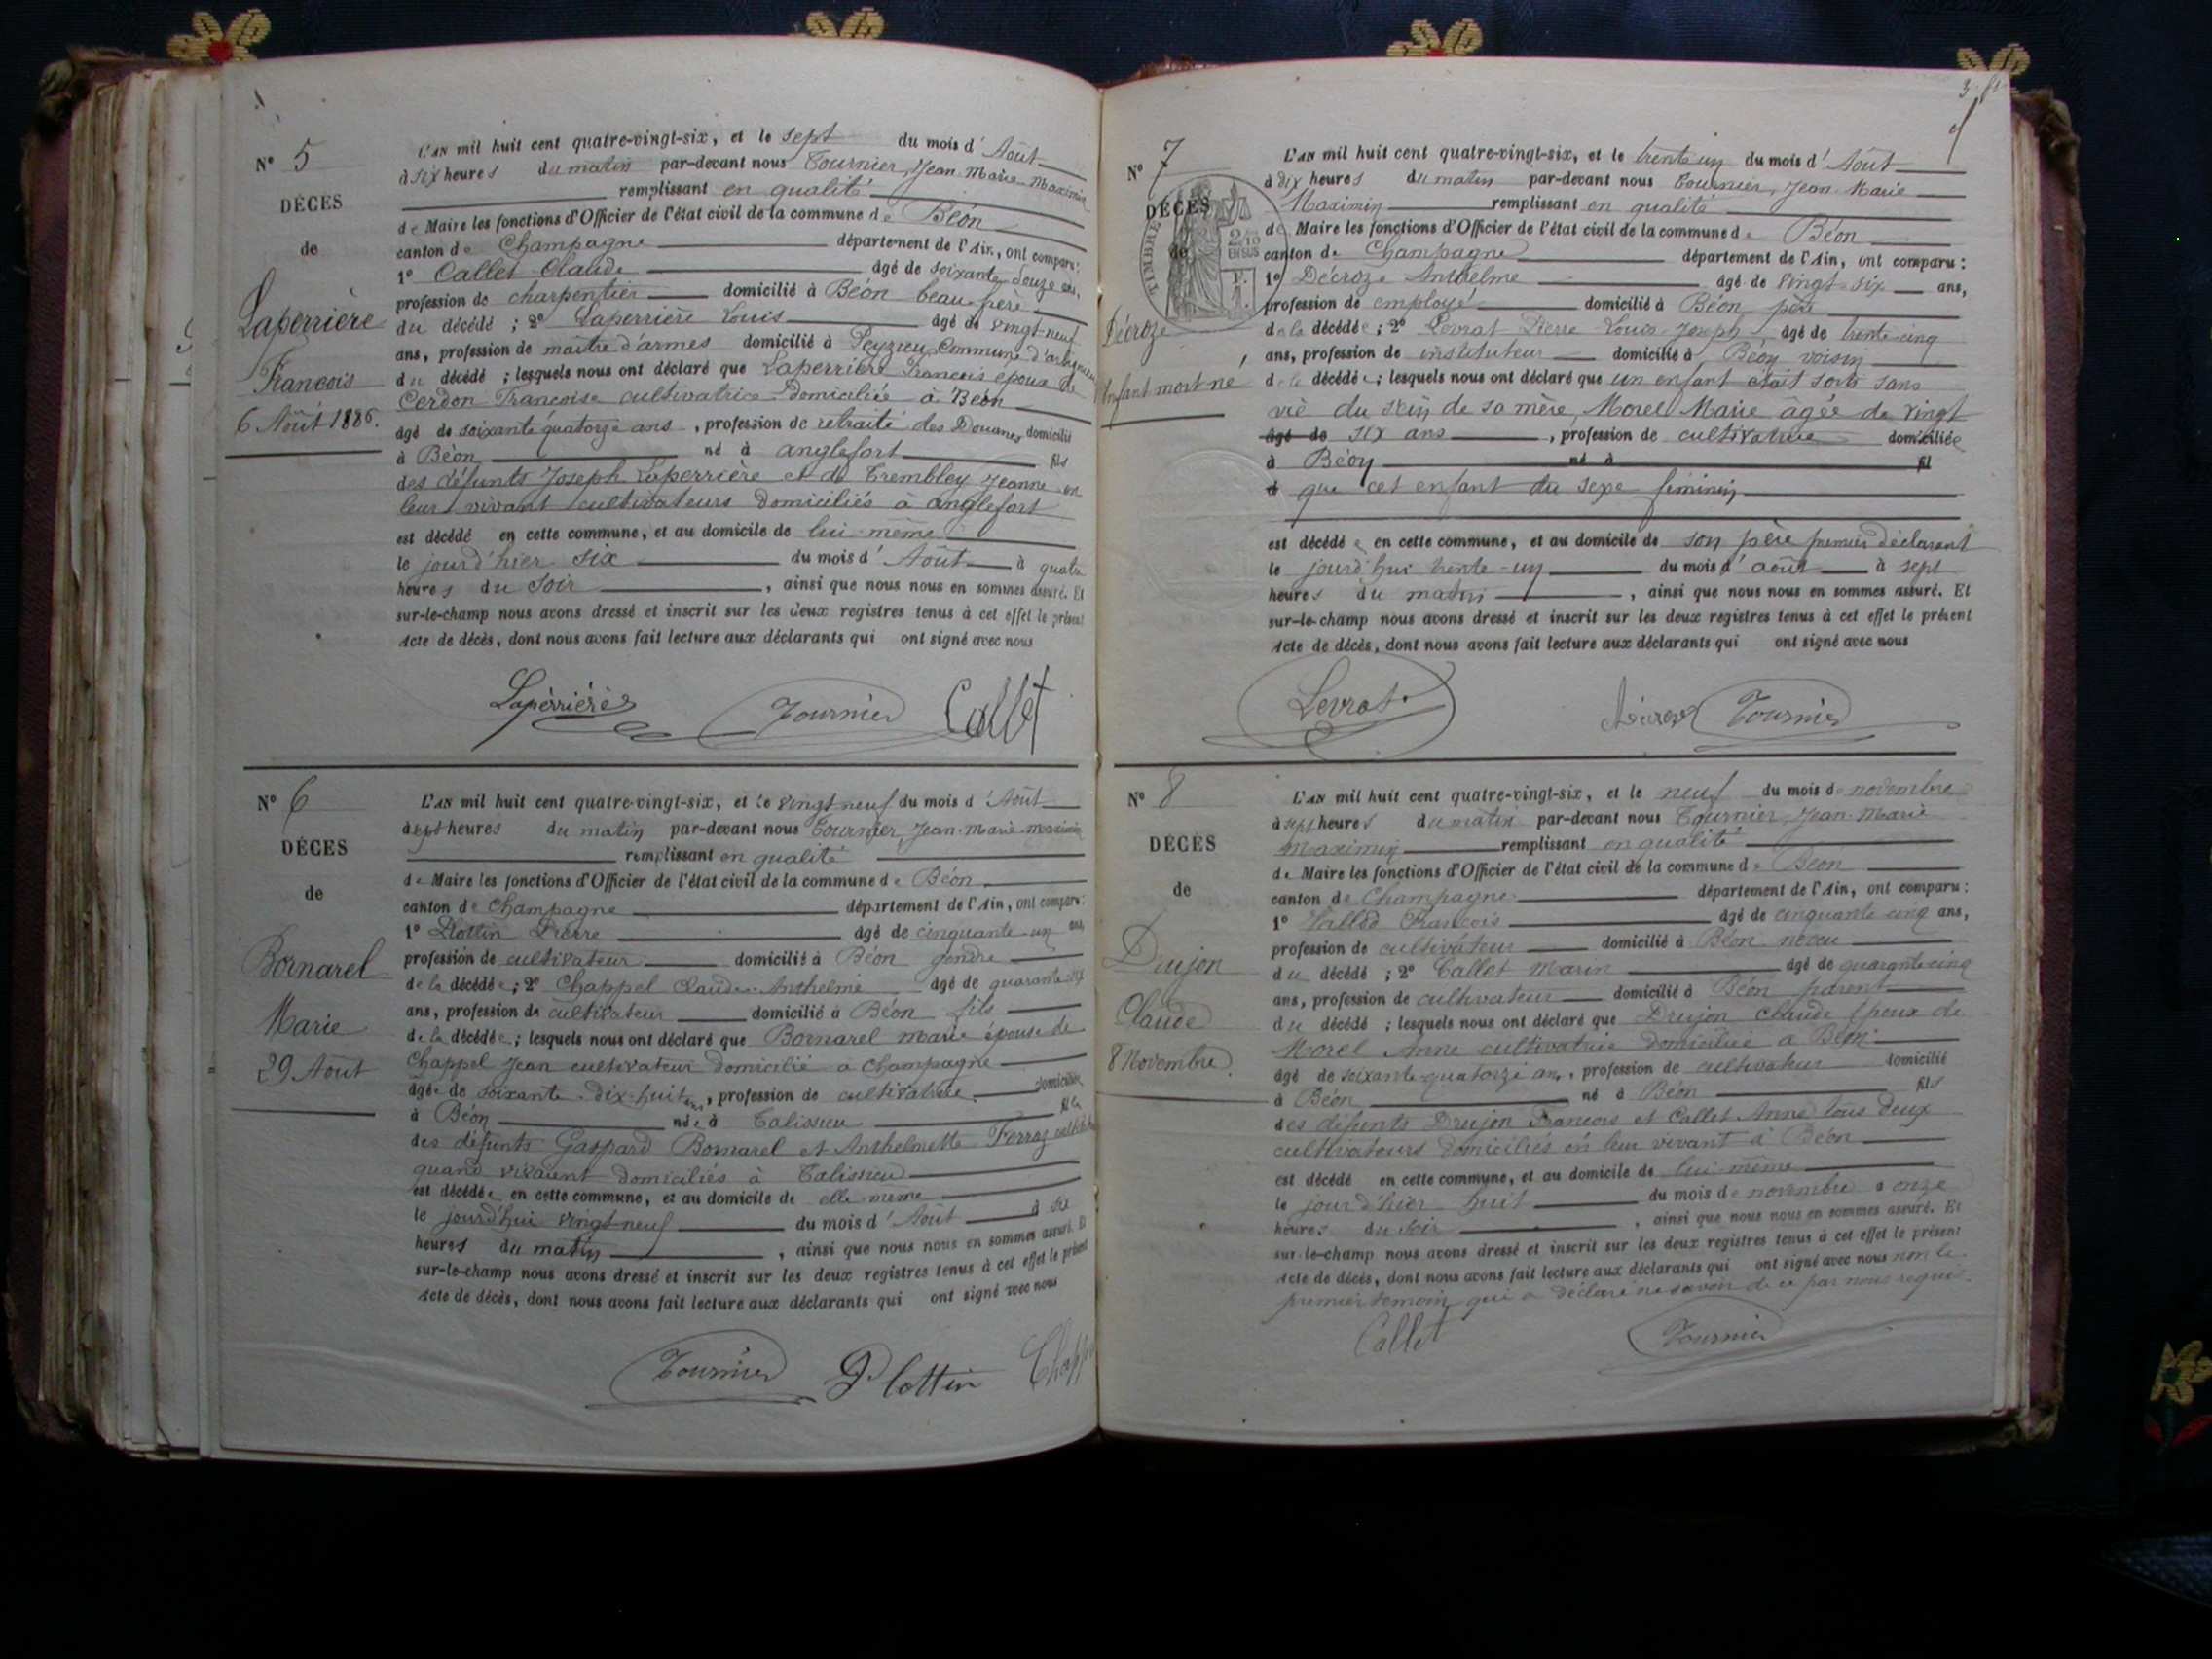 N° 5
DÉCES
de
Laperrière
François
6 Août 1886.
L'AN mil huit cent quatre-vingt-six, et le sept du mois d'Août
à six heures du matin par-devant nous Tournier, Jean Marie Maximin
remplissant en qualité
de Maire les fonctions d'Officier de l'état civil de la commune de Béon
canton de Champagne département de l'Ain, ont comparu:
1° Callet Claude âgé de soixante-douze ans,
profession de charpentier domicilié à Béon beau-père
du décédé ; 2° Laperrière Louis âgé de vingt-neuf
ans, profession de maître d'armes domicilié à Peyzieu Commune d'
du décédé ; lesquels nous ont déclaré que Laperrière François époux de
Cerdon Françoise cultivatrice domiciliée à Béon
âgé de soixante quatorze ans, profession de retraité des Douanes domicilié
à Béon né à anglefort fils
des défunts Joseph Laperrière et de Trembley Jeanne en
leur vivant cultivateurs domiciliés à anglefort
est décédé en cette commune, et au domicile de lui-même
le jourd'hier six du mois d'Août à quatre
heures du soir, ainsi que nous nous en sommes assuré. Et
sur-le-champ nous avons dressé et inscrit sur les deux registres tenus à cet effet le présent
Acte de décès, dont nous avons fait lecture aux déclarants qui ont signé avec nous
Laperrière Tournier Callet
N° 6
DÉCES
de
Bornarel
Marie
29 Août
L'AN mil huit cent quatre-vingt-six, et le vingt neuf du mois d'Août
à sept heures du matin par-devant nous Tournier, Jean-Marie-Maximin
remplissant en qualité
de Maire les fonctions d'Officier de l'état civil de la commune de Béon
canton de Champagne département de l'Ain, ont comparu:
1° Plottin Pierre âgé de cinquante-un ans,
profession de cultivateur domicilié à Béon gendre
de la décédée ; 2° Chappel Claude-Anthelme âgé de quarante six
ans, profession de cultivateur domicilié à Béon fils
de la décédée ; lesquels nous ont déclaré que Bornarel Marie épouse de
Chappel Jean cultivateur domicilié à Champagne
âgée de soixante-dix-huit ans, profession de cultivatrice domiciliée
à Béon née à Talissieu fille
des défunts Gaspard Bornarel et Anthelmette Ferroz
quand vivaient domiciliés à Talissieu
est décédée en cette commune, et au domicile de elle-même
le jourd'hui vingt neuf du mois d'Août à six
heures du matin, ainsi que nous nous en sommes assuré. Et
sur-le-champ nous avons dressé et inscrit sur les deux registres tenus à cet effet le présent
Acte de décès, dont nous avons fait lecture aux déclarants qui ont signé avec nous
Tournier Plottin
N° 7
DÉCES
de
TIMBRE
2/10
EN SUS
Décroze
Enfant mort-né
L'AN mil huit cent quatre-vingt-six, et le trente un du mois d'Août
à dix heures du matin par-devant nous Tournier, Jean-Marie
Maximin remplissant en qualité
de Maire les fonctions d'Officier de l'état civil de la commune de Béon
canton de Champagne département de l'Ain, ont comparu:
1° Décroze Anthelme âgé de vingt-six ans,
profession de employé domicilié à Béon père
de la décédée ; 2° Levrat Pierre-Louis-Joseph, âgé de trente-cinq
ans, profession de instituteur domicilié à Béon voisin
de la décédée ; lesquels nous ont déclaré que un enfant était sorti sans
vie du sein de sa mère, Morel Marie âgée de vingt
âgé de six ans, profession de cultivatrice domiciliée
à Béon né à fil
d que cet enfant du sexe féminin
est décédée en cette commune, et au domicile de son père premier déclarant
le jourd'hui trente-un du mois d'août à sept
heures du matin, ainsi que nous nous en sommes assuré. Et
sur-le-champ nous avons dressé et inscrit sur les deux registres tenus à cet effet le présent
Acte de décès, dont nous avons fait lecture aux déclarants qui ont signé avec nous
Levrat Décroze Tournier
N° 8
DÉCES
de
Drujon
Claude
8 Novembre.
L'AN mil huit cent quatre-vingt-six, et le neuf du mois de novembre
à sept heures du matin par-devant nous Tournier, Jean-Marie
Maximin remplissant en qualité
de Maire les fonctions d'Officier de l'état civil de la commune de Béon
canton de Champagne département de l'Ain, ont comparu:
1° François âgé de cinquante-cinq ans,
profession de cultivateur domicilié à Béon neveu
du décédé ; 2° Callet Marin âgé de quarante cinq
ans, profession de cultivateur domicilié à Béon parent
du décédé ; lesquels nous ont déclaré que Drujon Claude époux de
Morel Anne cultivatrice domiciliée à Béon
âgé de soixante-quatorze ans, profession de cultivateur domicilié
à Béon né à Béon fils
des défunts Drujon François et Callet Anne tous deux
cultivateurs domiciliés en leur vivant à Béon
est décédé en cette commune, et au domicile de lui-même
le jourd'hier huit du mois de novembre à onze
heures du soir, ainsi que nous nous en sommes assuré. Et
sur-le-champ nous avons dressé et inscrit sur les deux registres tenus à cet effet le présent
Acte de décès, dont nous avons fait lecture aux déclarants qui ont signé avec nous non le
premier témoin qui a déclaré ne savoir de ce par nous requis.
Callet Tournier